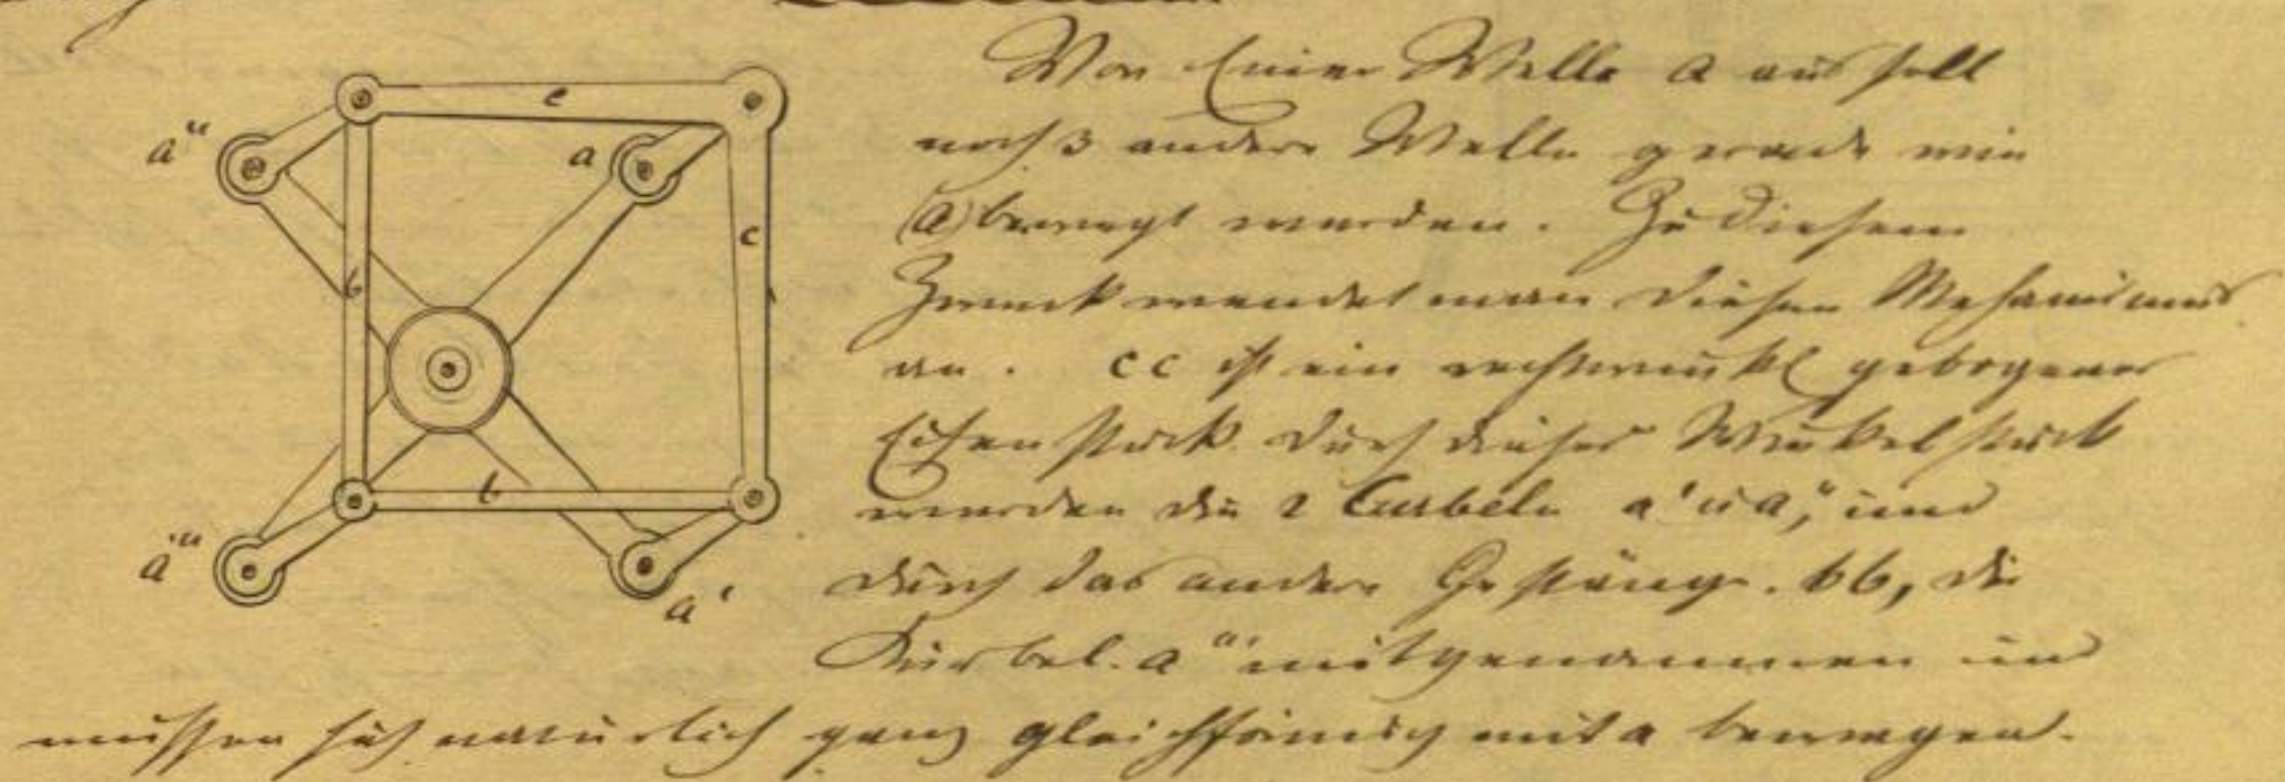 Von Einer Welle a aus soll
noch 3 andere Wellen gerade wie
(a) bewegt werden. Zu diesem
Zweck wendet man diesen Mechanismus
an. cc ist ein rechtwinkl gebogenes
Eisenstück. Durch dieses Winkelstück
werden die 2 Curbeln a' u a'', und
durch das andere Gestänge. bb, die
Kurbel. a''' mitgenommen und
müssen sich natürlich ganz gleichförmig mit a bewegen.
a''
e
a
c
b
b
a'''
a'